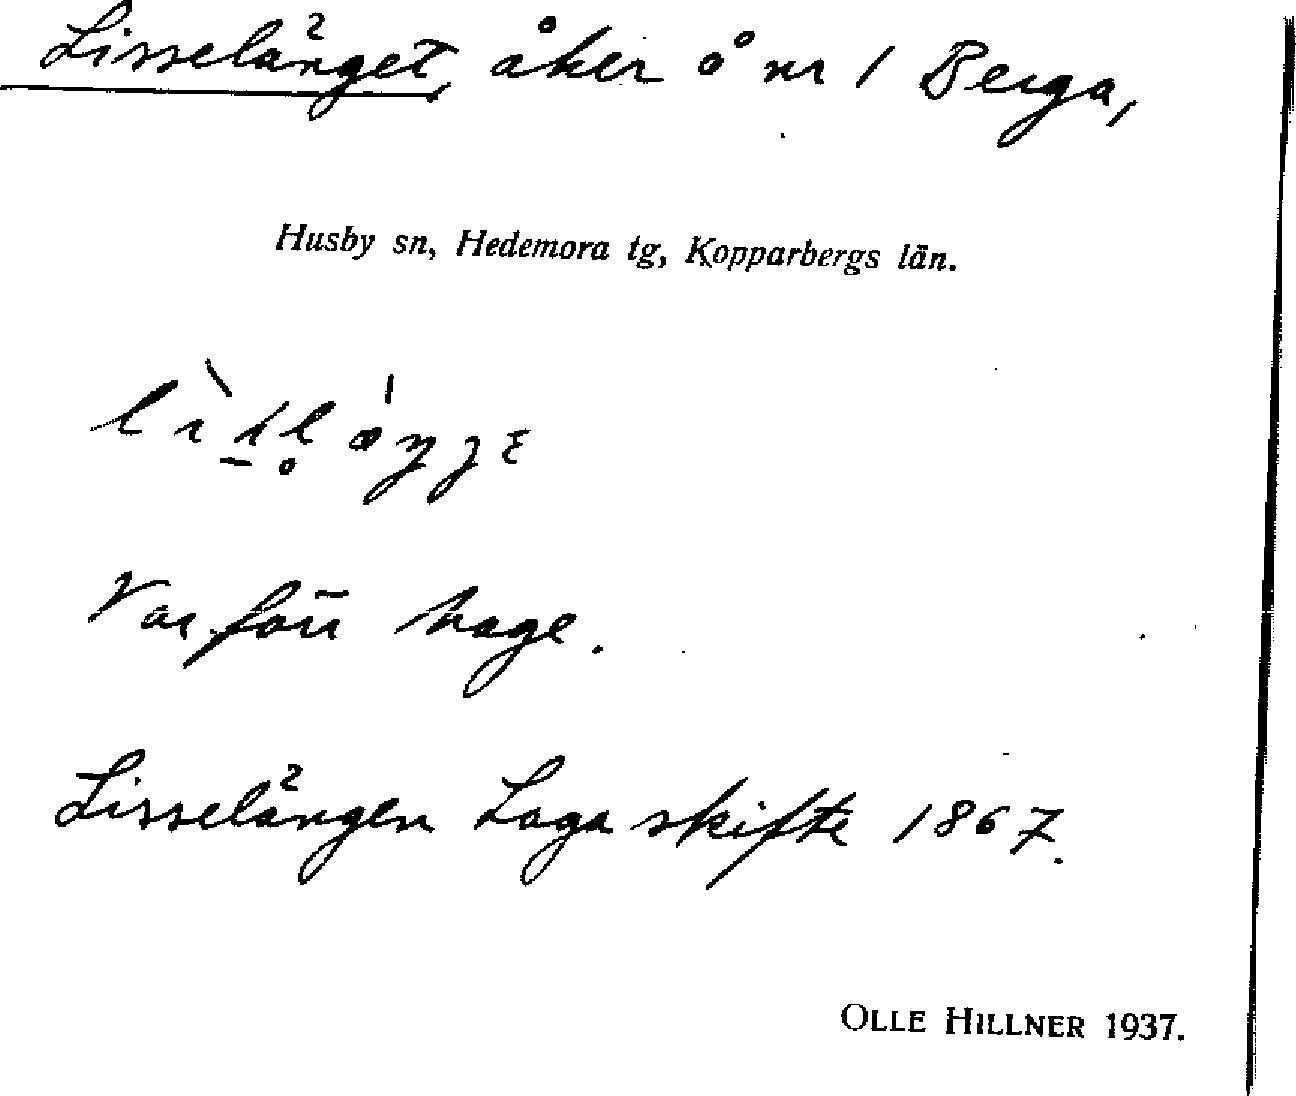 Lisselänget, åker å nr 1 Berga,
Husby sn, Hedemora tg, Kopparbergs län.
Var förr hage.
Lisselängen Laga skifte 1867.
OLLE HILLNER 1937.